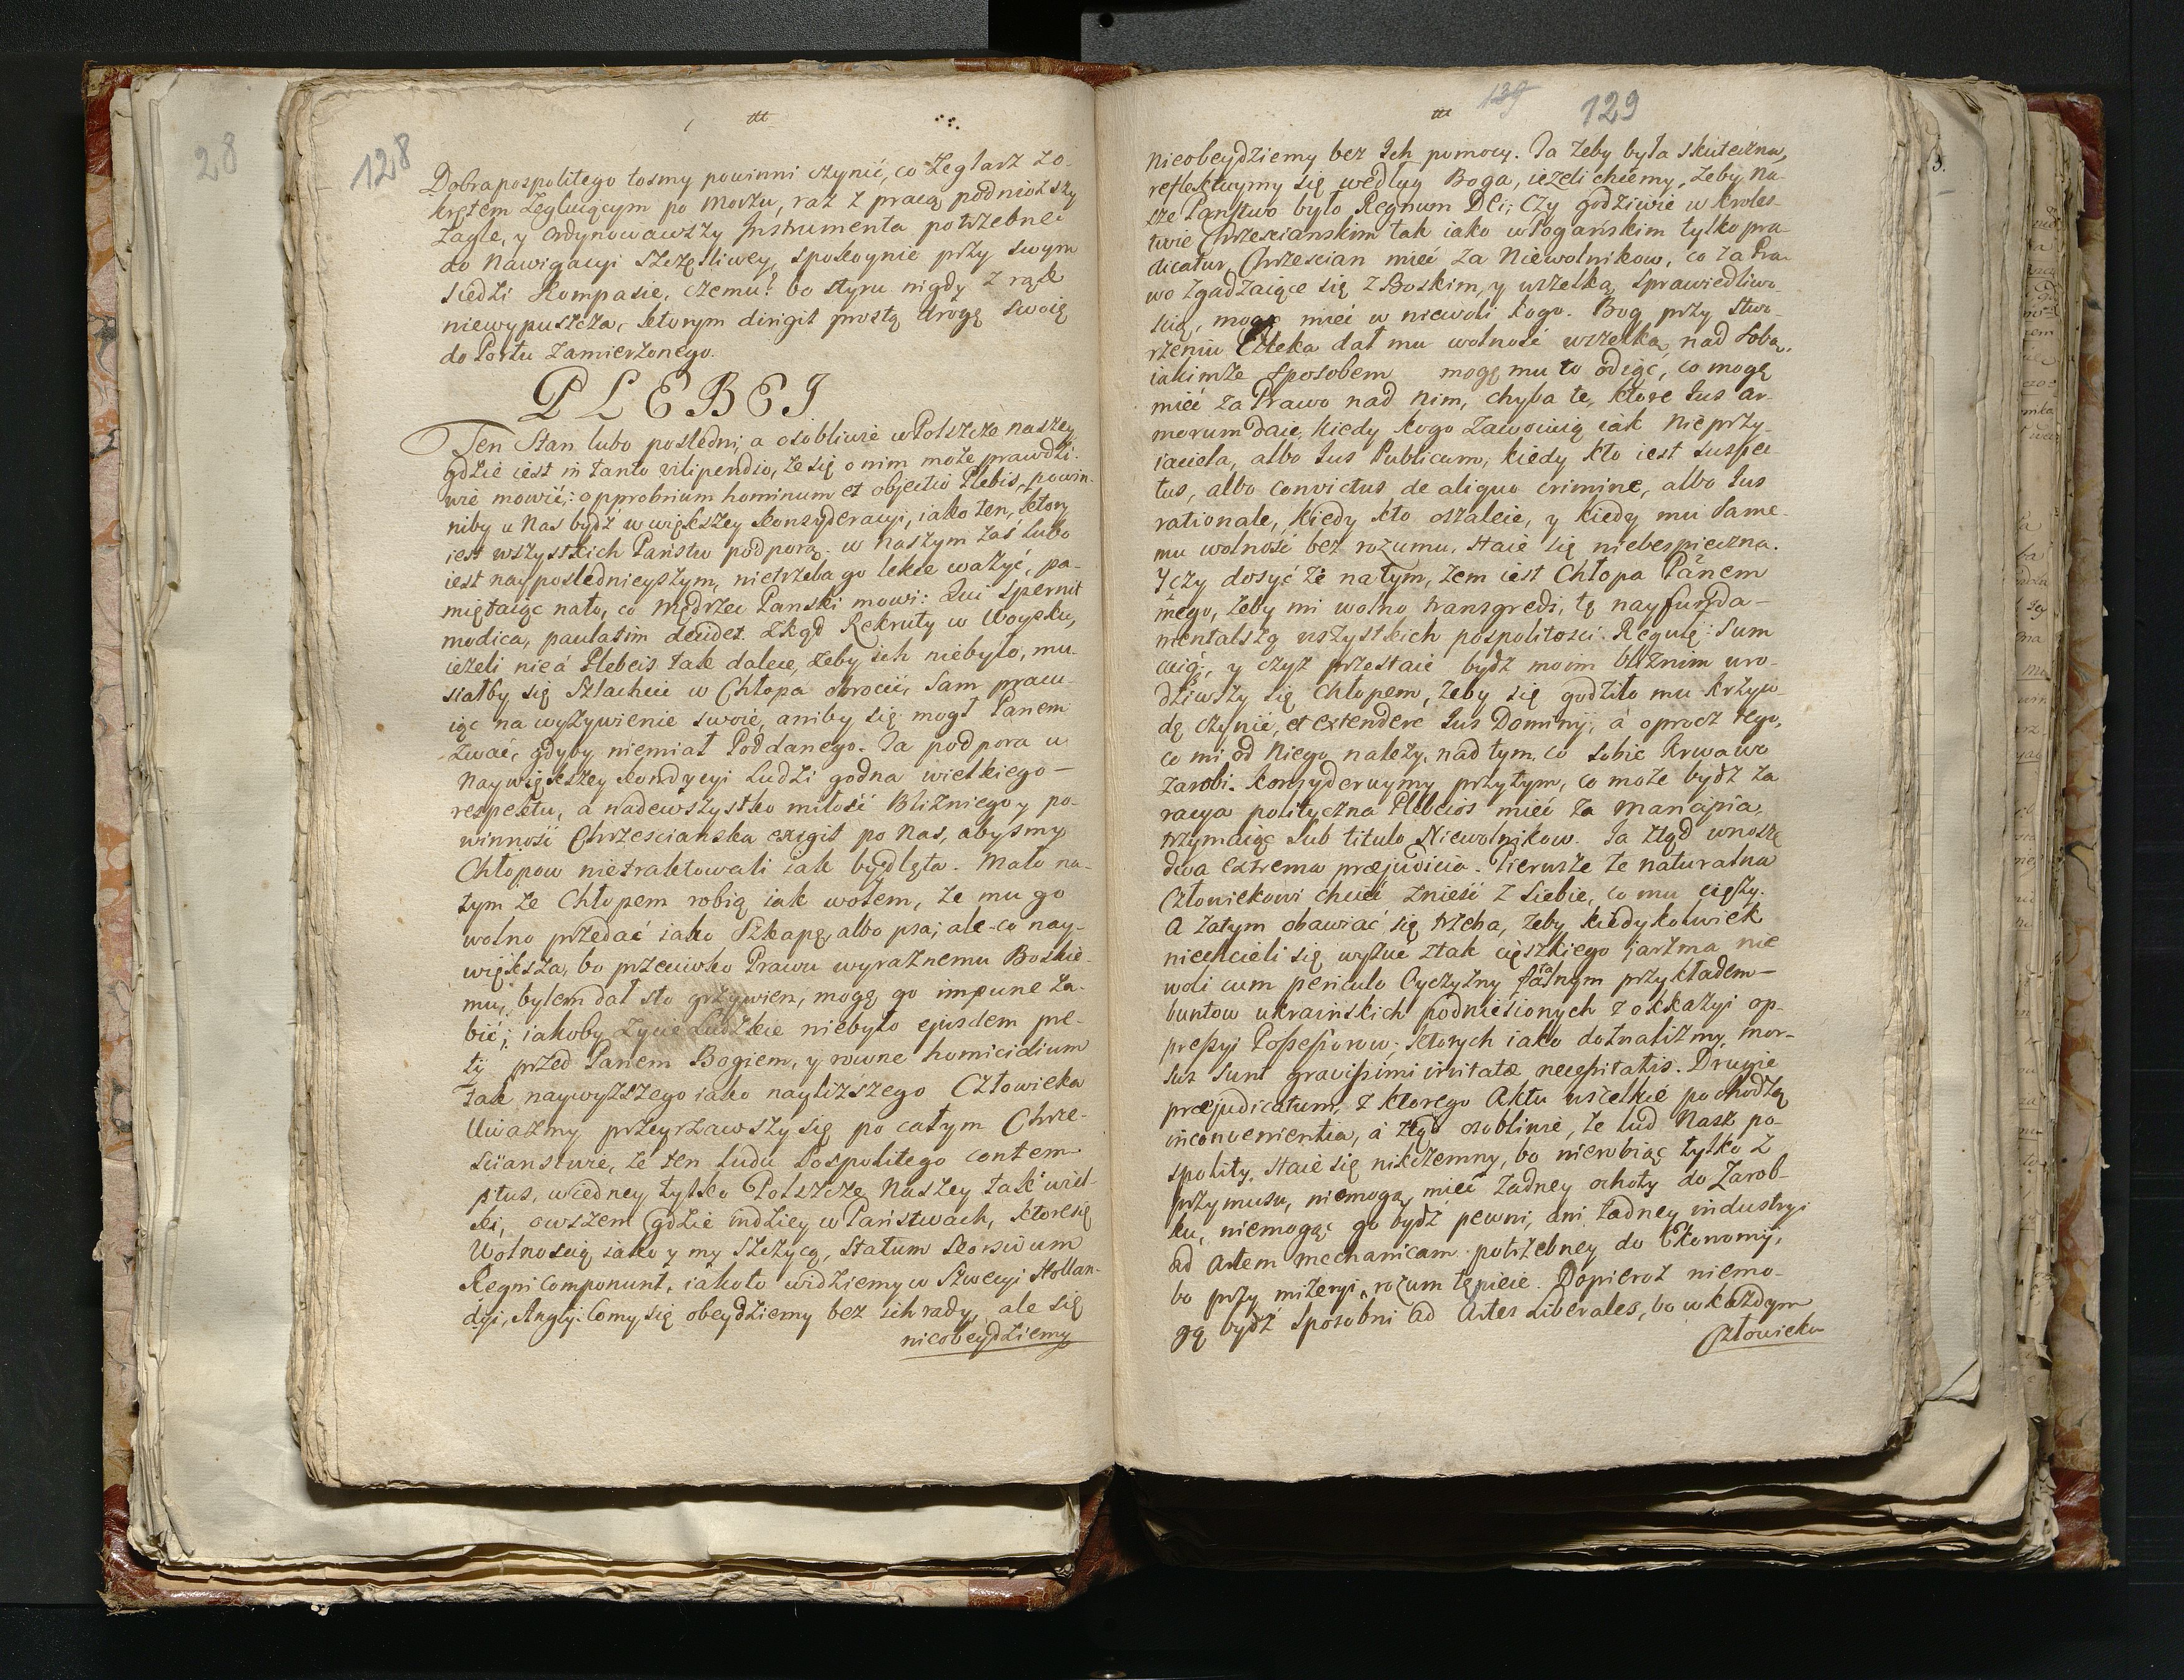 28
128
Dobra pospolitego tosmy powinni czynić, co Żeglarz zo-
krętem żegluiącym po morzu, raz z pracą podniozszy
Zagle, y ordynowawszy Instrumenta potrzebne
do Nawigacyi szczęsliwey, spokoynie przy swym
siedzi Kompasie, czemu? bo styru nigdy z rąk
niewypuszcza, ktorym dirigit prostą drogę swoię
do Portu zamierzonego.
PLEBEI
Ten Stan lubo posledni, a osobliwie w Polszcze naszey
gdzie iest in tanto vilipendio, że się o nim może prawdzi-
wie mowić: opprobrium hominum et objectio Plebis, powin-
niby u Nas bydź w większey konsyderacyi, iako ten, ktory
iest wszystkich Państw podporą. w naszym zaś lubo
iest nayposlednieyszym, nietrzeba go lekce ważyć, pa-
miętaiąc nato, co Mędrzec Panski mowi: Qui spernit
modica, paulatim decidet. Zkąd Rekruty w Woysku,
ieżeli nie á Plebeis tak dalece, żeby ich niebyło, mu-
siałby się Szlachcic w Chłopa obrocić, sam pracu-
iąc na wyżywienie swoie, aniby się mogł Panem
zwać, gdyby niemiał Poddanego. Ta podpora u
Naywiększey kondycyi Ludzi godna wielkiego
respektu, á nadewszystko miłość Bliźniego y po-
winność Chrzescianska exigit po Nas, abysmy
Chłopow nietraktowali iak bydlęta. Mało na-
tym że Chłopem robią iak wołem, że mu go
wolno przedać iako Szkapę, albo psa; ale co nay-
większa, bo przeciwko Prawu wyraźnemu Boskie-
mu, bylem dał sto grzywien, mogę go impune za-
bić; iakoby życie Ludzkie niebyło ejusdem pre-
tij przed Panem Bogiem, y rowne homicidium
tak naywyższego iako nayliższego Człowieka
Uważmy przeyrzawszy się po całym Chrze-
sciaństwie, że ten ludu Pospolitego contem-
ptus, w iedney tylko Polszcze Naszey tak wiel-
ki, owszem gdzie indziey w Państwach, ktore się
Wolnoscią iako y my szczycą, Statum
Regni componunt, iakoto widziemy w Szwecyi Hollan-
dyi, Anglij: Comy się obeydziemy bez ich rady, ale się
nieobeydziemy
139
129
nieobeydziemy bez Ich pomocy. Ta żeby była skuteczna,
reflektuymy się według Boga, ieżeli chcemy, żeby Na-
sze Państwo było Regnum Dei; Czy godziwie w Kroles-
twie Chrzescianskim tak iako w Pogańskim tylko pra-
dicatur, Chrzescian mieć za Niewolnikow, co za Pra-
wo zgadzaiące się z Boskim, y wszelką sprawiedliwo-
scią, mogę mieć w niewoli kogo. Bog przy stwo-
rzeniu Człeka dał mu wolność wszelką nad sobą,
iakimże sposobem mogę mu to odiąć, co mogę
mieć za Prawo nad nim, chyba te, ktore Ius ar-
morum daie, kiedy kogo zawoiuią iak nieprzy-
iaciela, albo Ius Publicum, kiedy kto iest suspec-
tus, albo convictus de aliquo crimine, albo Ius
rationale, kiedy kto oszaleie, y kiedy mu same-
mu wolność bez rozumu, staie się niebespieczna.
Y czy dosyć że natym, żem iest Chłopa Panem
mego, żeby mi wolno transgredi, tę nayfunda-
mentalszą wszystkich pospolitosci Regułę: Sum
cuiq; y czyż przestaie bydź moim bliźnim uro-
dziwszy się chłopem, żeby się godziło mu krzyw-
dę czynić, et extendere Ius Dominij, á oprocz tego,
co mi od Niego należy, nad tym, co sobie krwawo
zarobi. Konsyderuymy przytym, co może bydź za
racya polityczna Plebeios mieć za mancipia,
trzymaiąc sub titulo Niewolnikow. Ja ztąd wnoszę
dwa extrema præjudicia. Pierwsze te naturalna
Człowiekowi chuć znieść z siebie, co mu cięży.
A zatym obawiać się trzeba, żeby kiedykolwiek
niechcieli się wyzuć ztak cięszkiego jarzma nie
woli cum periculo Oyczyzny fatalnym przykładem
buntow ukraińskich podniesionych z okkazyi op-
pressyi Possessorow; ktorych iako doznalismy, mor-
sus sunt gravissimi irritatæ necessitatis. Drugie
præjudicatum, z ktorego Aktu wszelkie pochodzą
inconvenientia, á ztąd osobliwie, że lud Nasz po-
spolity, staie się nikczemny, bo nierobiąc tylko z
przymusu, niemogą mieć żadney ochoty do Zarob-
ku, niemogąc go bydź pewni, ani żadney industryi
ad Artem mechanicam potrzebney do Ekonomij,
bo przy mizeryi, rozum tępieie. Dopieroż niemo-
gą bydź sposobni ad Artes Liberales, bo w każdym
Człowieku